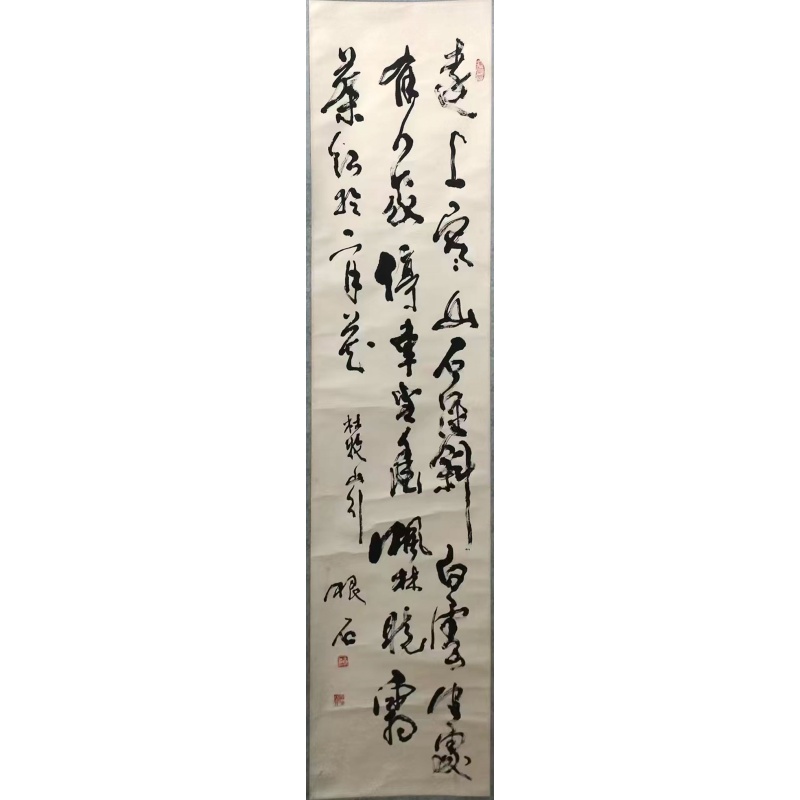 遠上寒山石徑斜白雲生處
有人家停車坐愛楓林晚霜
葉紅於二月花
杜牧山行
石